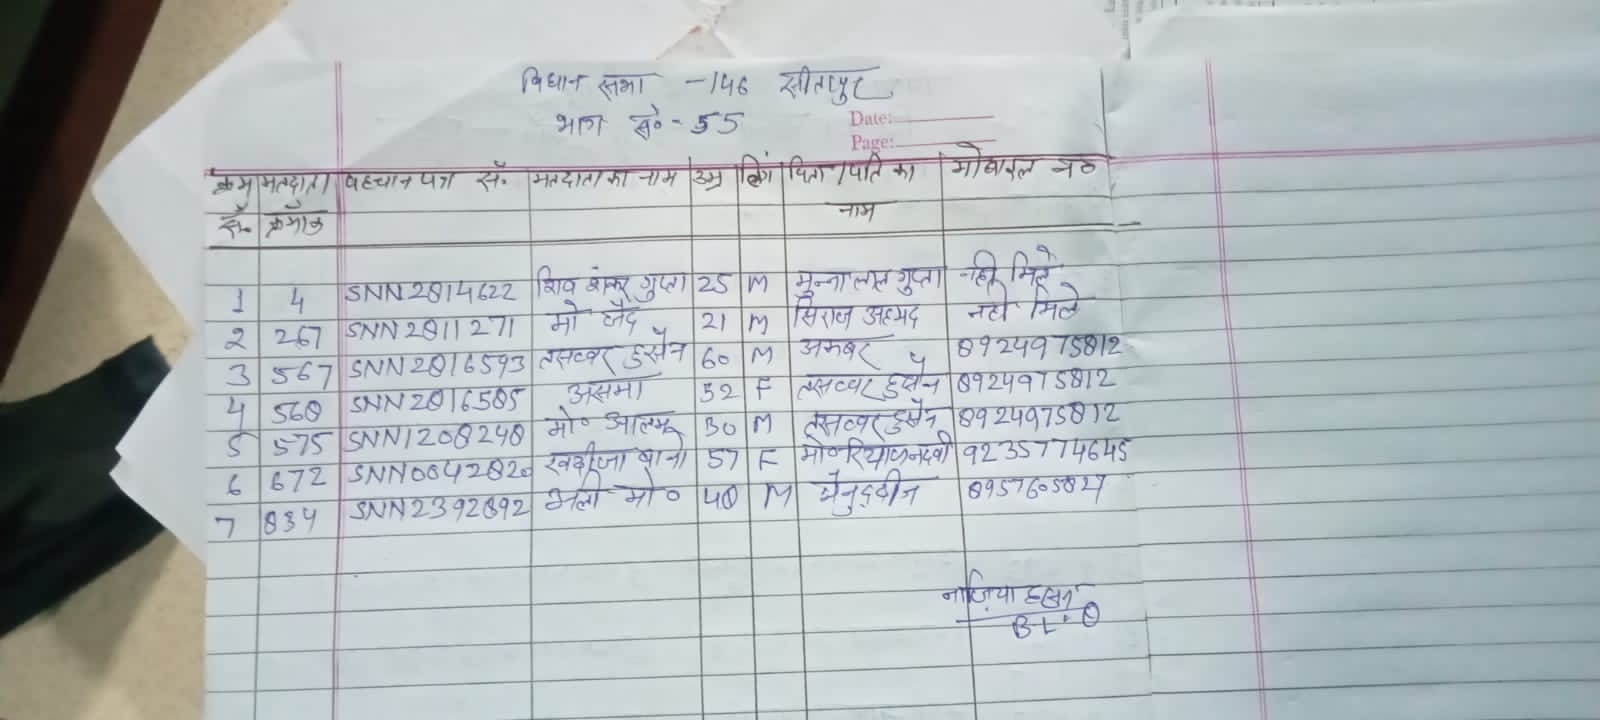 विधान सभा - 146 सीतापुर
भाग सं० - 55
Date:
Page:
क्रम सं० मतदाता क्रमांक पहचान पत्र सं० मतदाता का नाम उम्र लिंग पिता/पति का नाम मोबाइल न०
1 4 SNN2814622 शिव शंकर गुप्ता 25 M मुन्ना लाल गुप्ता नही मिले
2 267 SNN2811271 मो जैद 21 M सिराज अहमद नही मिले
3 567 SNN2816593 तसव्वर हुसैन 60 M अकबर 8924975812
4 568 SNN2816585 असमा 52 F तसव्वर हुसैन 8924975812
5 575 SNN1208248 मो० आलम 30 M तसव्वर हुसैन 8924975812
6 672 SNN0042820 खदीजा बानो 57 F 9235774645
7 834 SNN2392892 अली मो० 48 M मैनुद्दीन 8957605827
नाज़िया हसन
BLO